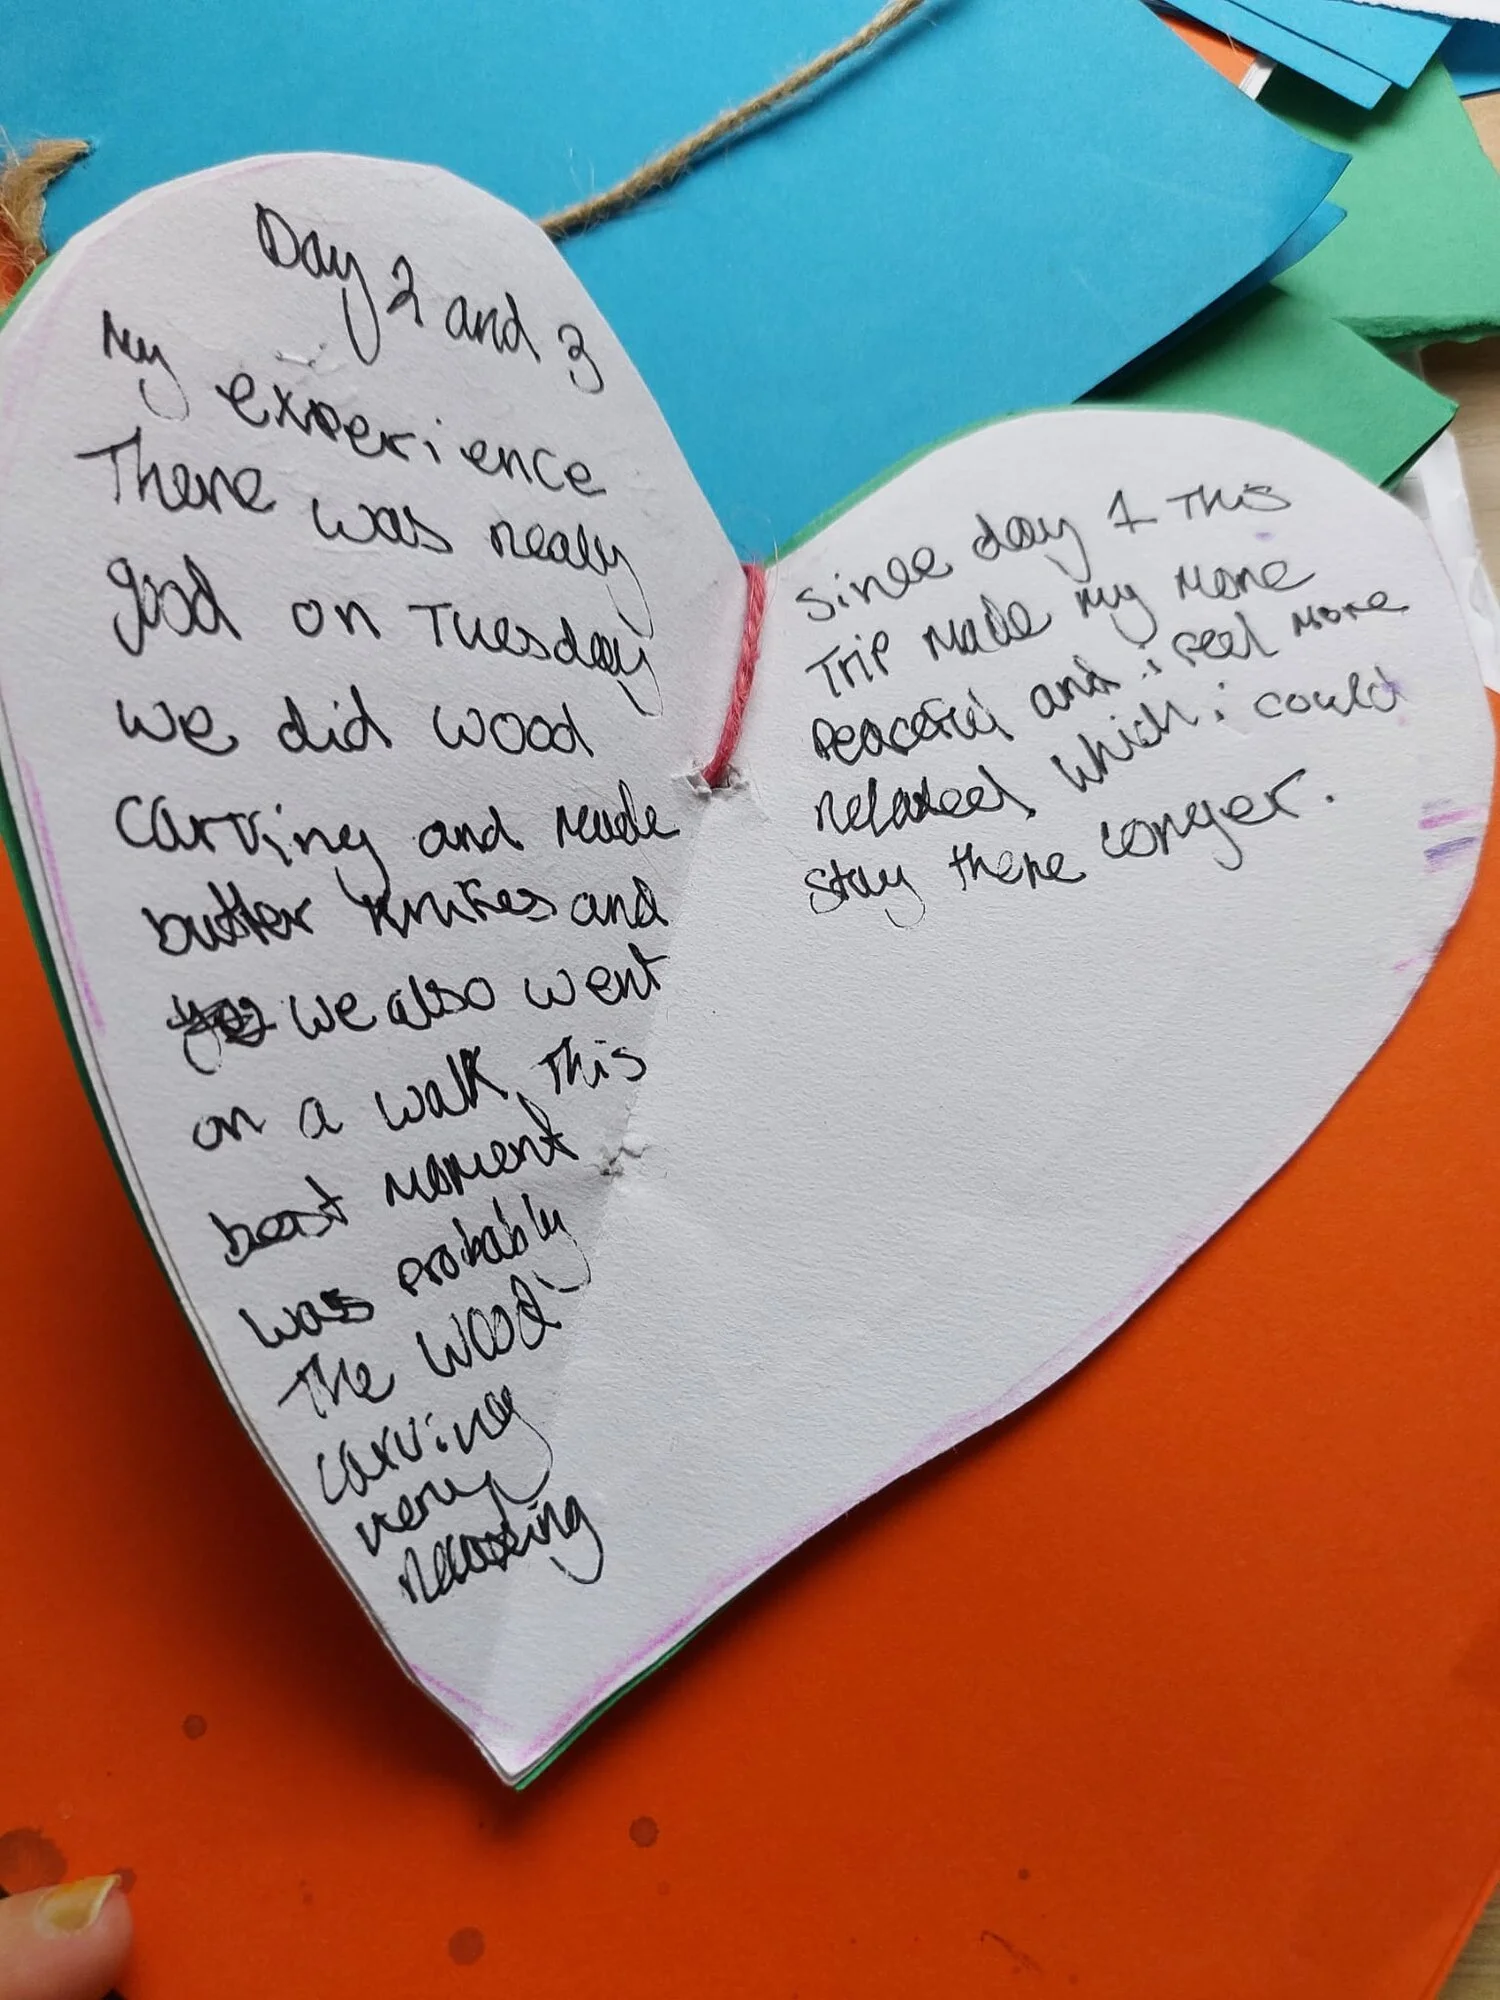 Day 2 and 3
My experience
There was realy
good on Tuesday
we did wood
carving and made
butter knifes and
we also went
on a walk, This
best moment
was probably
The wood
carving
very
relaxing
since day 1 This
Trip made my more
peaceful and i feel more
relaxed, which i could
stay there longer.